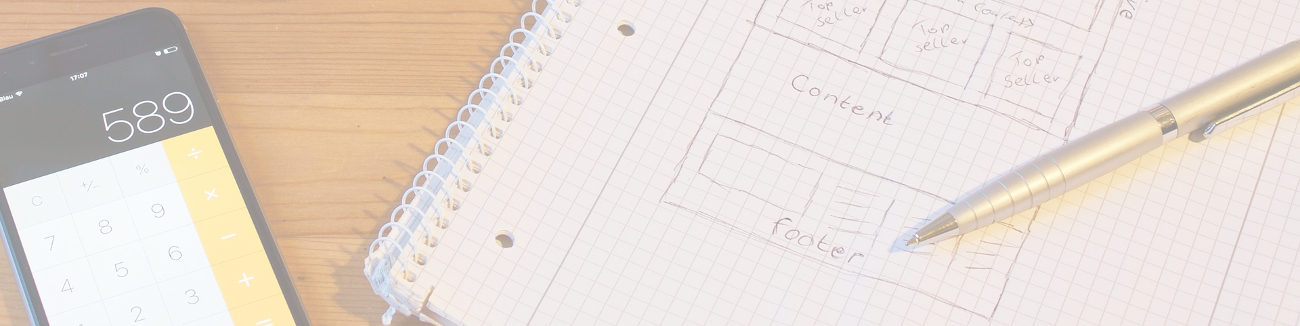 17:07
589
C +/- % ÷
7 8 9 ×
4 5 6 −
2 3 +
=
Top
seller
Top
seller
Top
seller
Content
footer